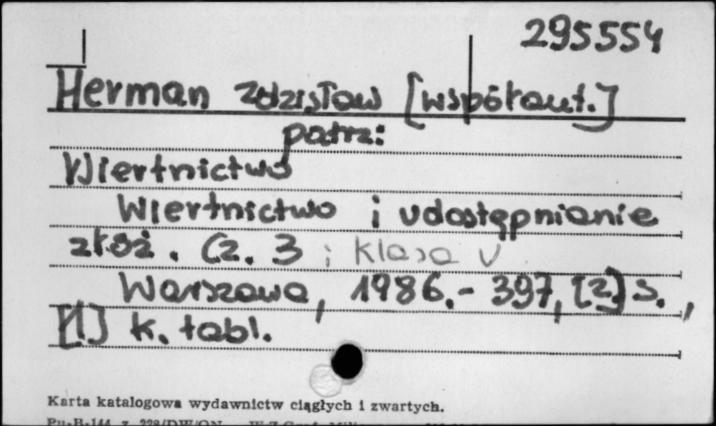 295554
Herman Zdzisław [współaut.]
patrz:
Wiertnictwo
Wiertnictwo i udostępnianie
złóż. Cz. 3 ; klasa V
Warszawa, 1986.- 397, [2] s.,
[1] k. tabl.
Karta katalogowa wydawnictw ciągłych i zwartych.